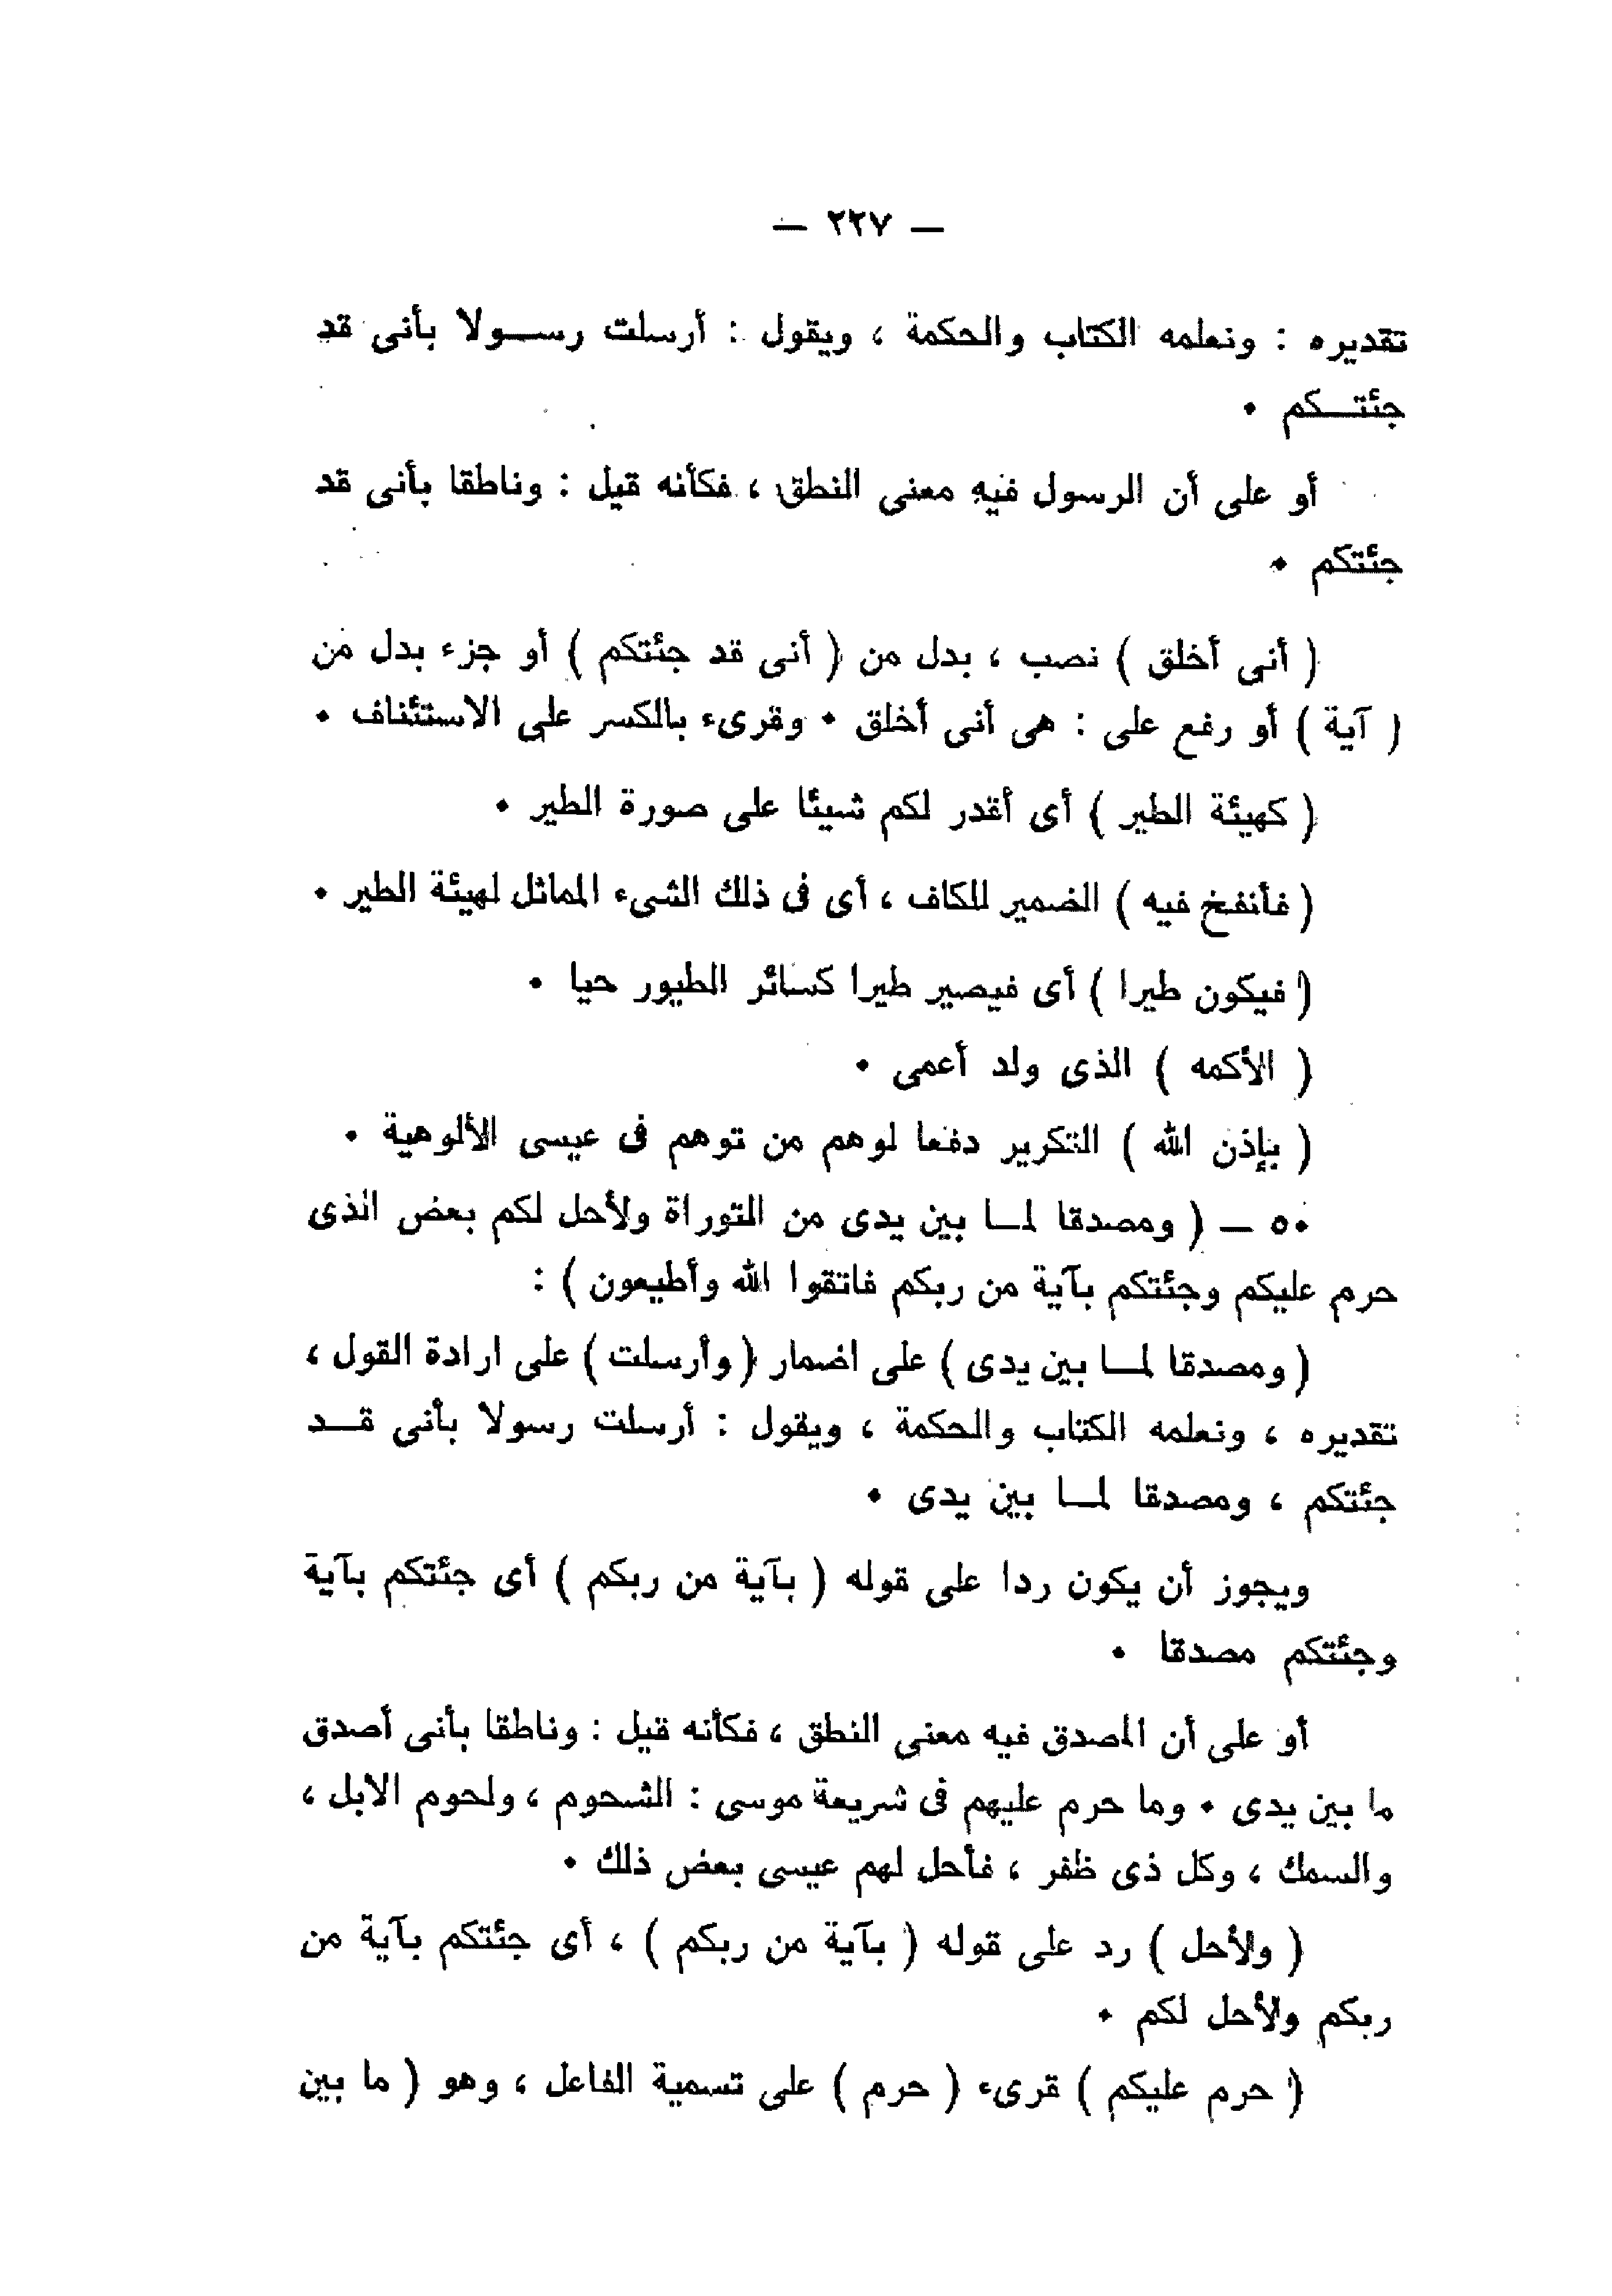 — ٢٢٧ —
تقديره : ونعلمه الكتاب والحكمة ، ويقول : أرسلت رســولا بأنى قد
جئتــكم ٠
أو على أن الرسول فيه معنى النطق ، فكأنه قيل : وناطقا بأنى قد
جئتكم ٠
( أنى أخلق ) نصب ، بدل من ( أنى قد جئتكم ) أو جزء بدل من
( آية ) أو رفع على : هى أنى أخلق ٠ وقرىء بالكسر على الاستئناف ٠
( كهيئة الطير ) أى أقدر لكم شيئا على صورة الطير ٠
( فأنفخ فيه ) الضمير للكاف ، أى فى ذلك الشىء المماثل لهيئة الطير ٠
( فيكون طيرا ) أى فيصير طيرا كسائر الطيور حيا ٠
( الأكمه ) الذى ولد أعمى ٠
( بإذن الله ) التكرير دفعا لوهم من توهم فى عيسى الألوهية ٠
٥٠ — ( ومصدقا لمــا بين يدى من التوراة ولأحل لكم بعض الذى
حرم عليكم وجئتكم بآية من ربكم فاتقوا الله وأطيعون ) :
( ومصدقا لمــا بين يدى ) على اضمار ( وأرسلت ) على ارادة القول ،
تقديره ، ونعلمه الكتاب والحكمة ، ويقول : أرسلت رسولا بأنى قــد
جئتكم ، ومصدقا لمــا بين يدى ٠
ويجوز أن يكون ردا على قوله ( بآية من ربكم ) أى جئتكم بآية
وجئتكم مصدقا ٠
أو على أن المصدق فيه معنى النطق ، فكأنه قيل : وناطقا بأنى أصدق
ما بين يدى ٠ وما حرم عليهم فى شريعة موسى : الشحوم ، ولحوم الابل ،
والسمك ، وكل ذى ظفر ، فأحل لهم عيسى بعض ذلك ٠
( ولأحل ) رد على قوله ( بآية من ربكم ) ، أى جئتكم بآية من
ربكم ولأحل لكم ٠
( حرم عليكم ) قرىء ( حرم ) على تسمية الفاعل ، وهو ( ما بين